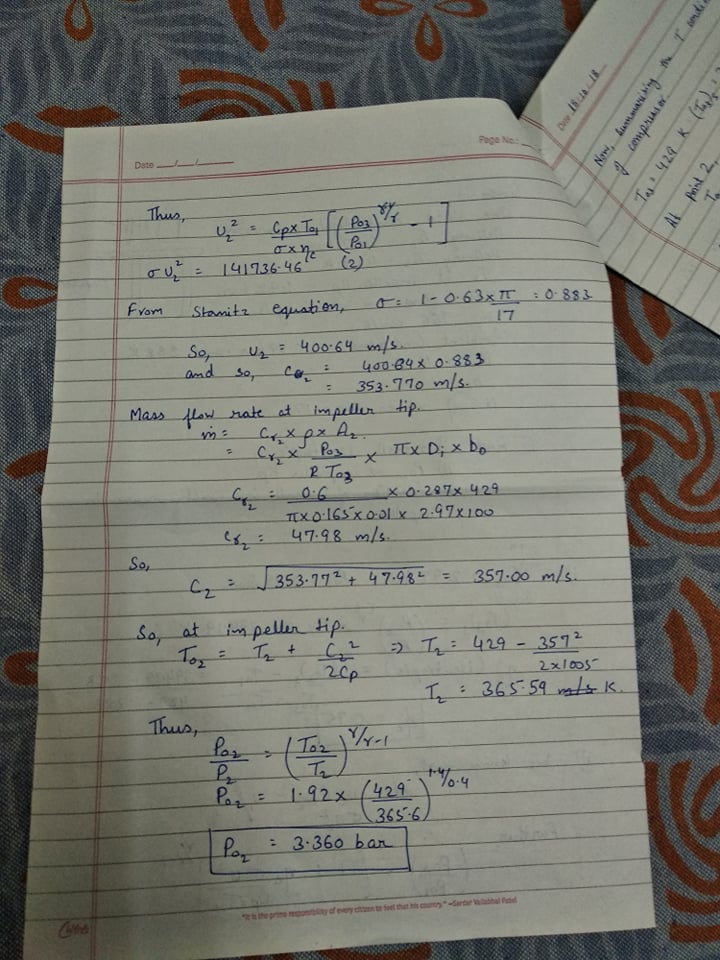 Page No:
Date __/__/____
Thus,
U₂² = Cp x T₀₁ / σ x ηc [(P₀₃/P₀₁)^(γ-1/γ) - 1]
σ U₂² = 141736.46 (2)
From Stanitz equation, σ = 1 - 0.63 x π / 17 = 0.883
So, U₂ = 400.64 m/s.
and so, Cθ₂ = 400.64 x 0.883
= 353.770 m/s.
Mass flow rate at impeller tip.
ṁ = Cr₂ x ρ x A₂.
= Cr₂ x P₀₃ / R T₀₃ x π x Di x b₀
Cr₂ = 0.6 x 0.287 x 429 / π x 0.165 x 0.01 x 2.97 x 100
Cr₂ = 47.98 m/s.
So,
C₂ = √(353.77² + 47.98²) = 357.00 m/s.
So, at impeller tip.
T₀₂ = T₂ + C₂² / 2Cp => T₂ = 429 - 357² / 2x1005
T₂ = 365.59 m/s K.
Thus,
P₀₂/P₂ = (T₀₂/T₂)^(γ/γ-1)
P₀₂ = 1.92 x (429/365.6)^(1.4/0.4)
P₀₂ = 3.360 bar
"It is the prime responsibility of every citizen to feel that his country." –Sardar Vallabhbhai Patel
Date
Now, summarising the T
of compressor
T₀₃ = 429 K
At point 2,